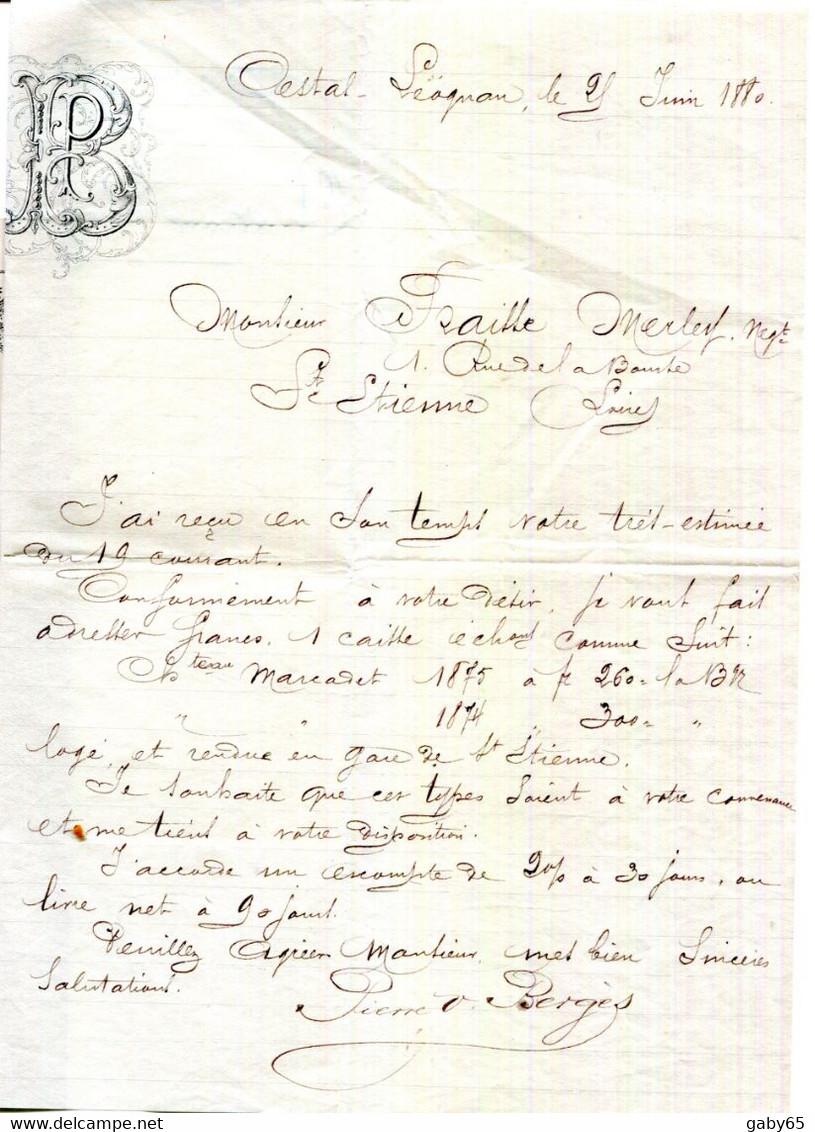 PB
Cestas-Léognan, le 25 Juin 1880.
Monsieur Fraisse Merley, Negt
1. Rue de la Bourse
St Etienne Loire
J'ai reçu en son temps votre très-estimée
du 19 courant.
Conformément à votre désir, je vous fais
adresser franco, 1 caisse échons comme suit :
Chteau Marcadet 1875 à fr 260 = la BR
" " 1874 " 300 = "
logé, et rendue en gare de St Etienne.
Je souhaite que ces types soient à votre convenance
et me tiens à votre disposition.
J'accorde un escompte de 2 o/o à 30 jours, ou
livre net à 90 jours.
Veuillez agréer Monsieur, mes bien sincères
salutations.
Pierre V. Bergès
delcampe.net
gaby65